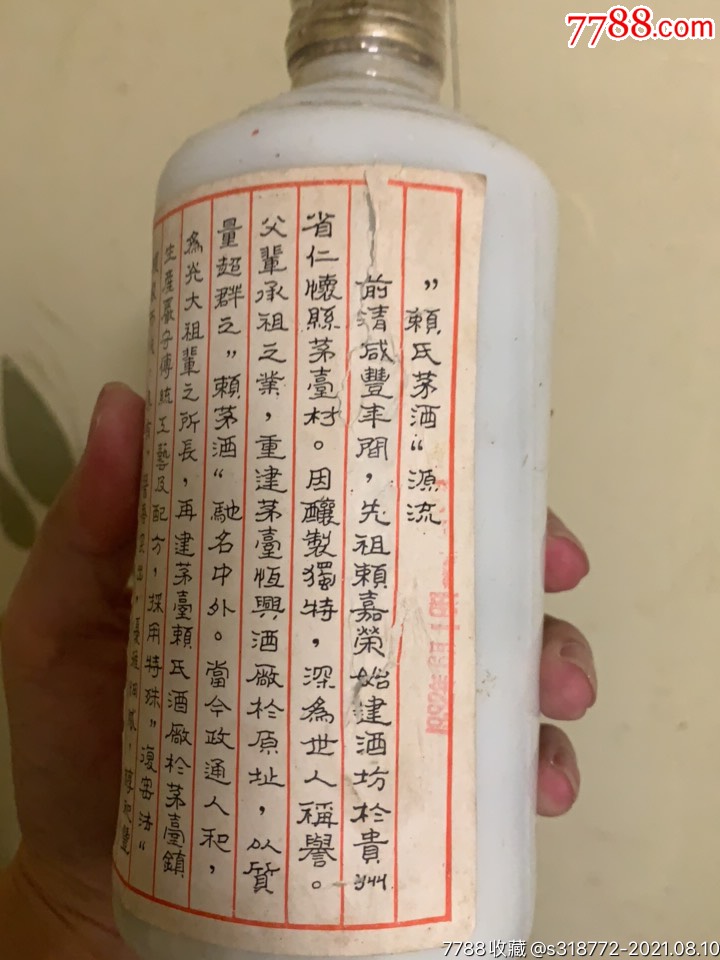 7788.com
”賴氏茅酒“源流
前清咸豐年間，先祖賴嘉榮始建酒坊於貴州
省仁懷縣茅臺村。因釀製獨特，深為世人稱譽。
父輩承祖之業，重建茅臺恆興酒廠於原址，以質
量超群之”賴茅酒“馳名中外。當今政通人和，
為光大祖輩之所長，再建茅臺賴氏酒廠於茅臺鎮
生產嚴守傳統工藝及配方，採用特殊”復窖法“
出，優雅細膩，醇和豐
7788收藏@s318772-2021.08.10